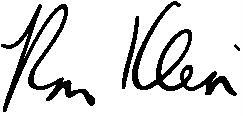 Ron Klein